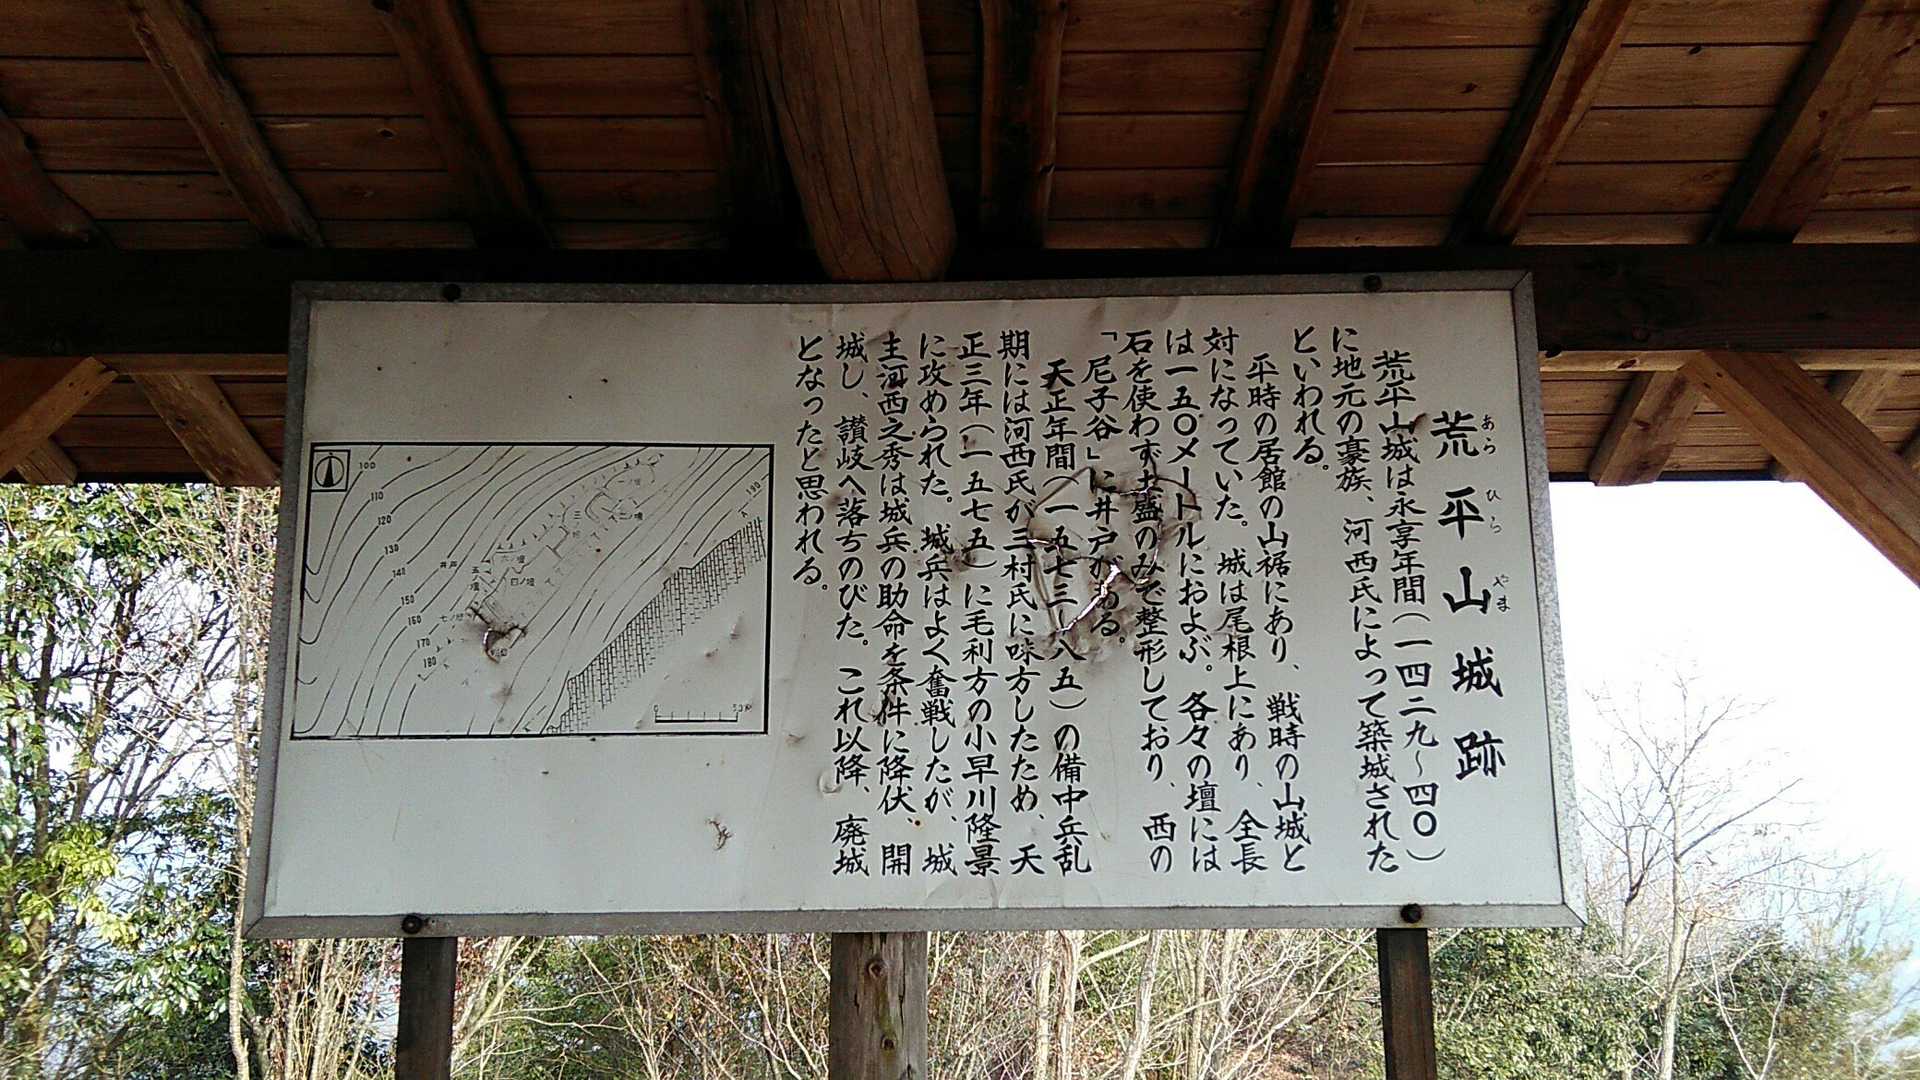 荒平山城跡
あら ひら やま
荒平山城は永享年間(一四二九~四〇)
に地元の豪族、河西氏によって築城された
といわれる。
平時の居館の山裾にあり、戦時の山城と
対になっていた。城は尾根上にあり、全長
は一五〇メートルにおよぶ。各々の壇には
石を使わず土盛のみで整形しており、西の
「尼子谷」に井戸がある。
天正年間(一五七三~八五)の備中兵乱
期には河西氏が三村氏に味方したため、天
正三年(一五七五)に毛利方の小早川隆景
に攻められた。城兵はよく奮戦したが、城
主河西之秀は城兵の助命を条件に降伏、開
城し、讃岐へ落ちのびた。これ以降、廃城
となったと思われる。
100
110
120
130
140
150
160
170
180
190
井戸
六ノ壇
五ノ壇
四ノ壇
0 50